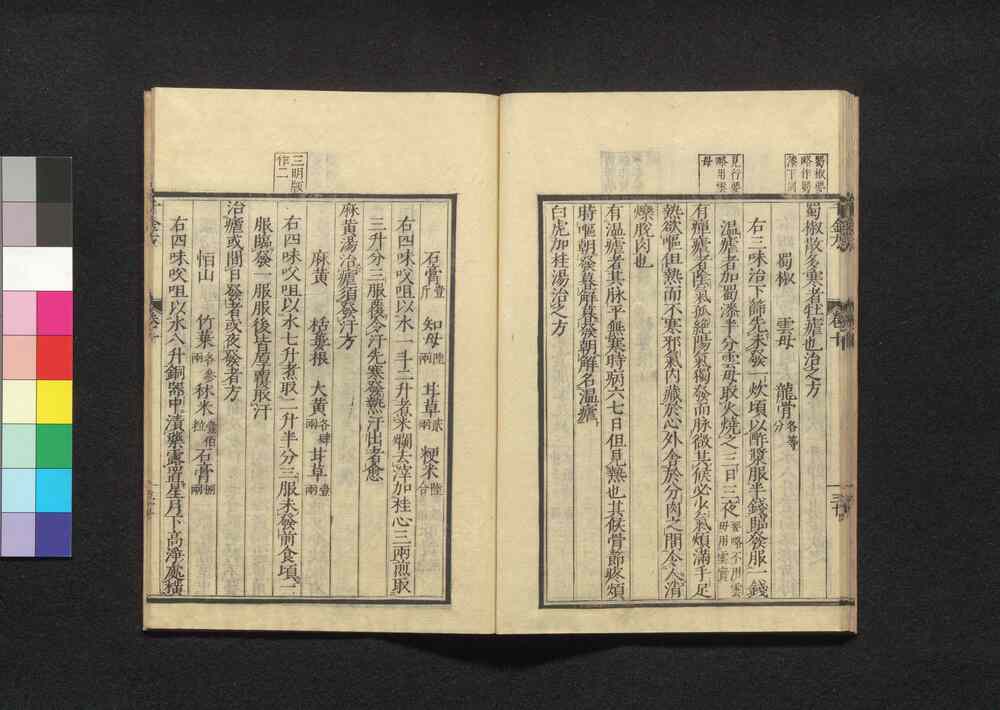 蜀椒要
略作蜀
漆下同
見行要
略用雲
母
蜀椒散多寒者牡瘧也治之方
蜀椒　雲母　龍骨各等分
右三味治下篩先未發一炊頃以酢漿服半錢臨發服一錢
温瘧者加蜀漆半分雲母取火燒之三日三夜要略不用雲母用雲實
有癉瘧者陰氣孤絶陽氣獨發而脉微其候必少氣煩滿手足
熱欲嘔但熱而不寒邪氣内藏於心外舍於分肉之間令人消
爍脱肉也
有温瘧者其脉平無寒時病六七日但見熱也其候骨節疼煩
時嘔朝發暮解暮發朝解名温瘧
白虎加桂湯治之方
三明版
作二
石膏壹斤　知母陸兩　甘草貳兩　粳米陸合
右四味㕮咀以水一斗二升煮米爛去滓加桂心三兩煎取
三升分三服覆令汗先寒發熱汗出者愈
麻黄湯治瘧須發汗方
麻黄　栝蔞根　大黄各肆兩　甘草壹兩
右四味㕮咀以水七升煮取二升半分三服未發前食頃一
服臨發一服服後皆厚覆取汗
治瘧或間日發者或夜發者方
恒山　竹葉各參兩　秫米壹佰粒　石膏捌兩
右四味㕮咀以水八升銅器中漬藥露置星月下高淨處横